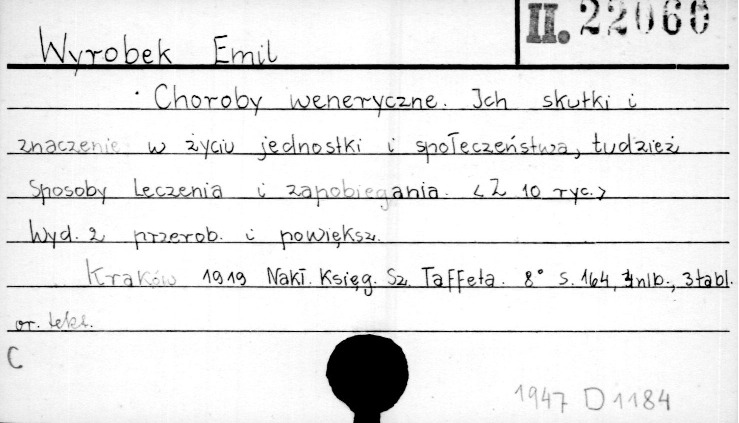 II. 22060
Wyrobek Emil
Choroby weneryczne. Ich skutki i
znaczenie w życiu jednostki i społeczeństwa, tudzież
Sposoby Leczenia i zapobiegania. <Z 10 ryc.>
Wyd. 2 przerob. i powiększ.
Kraków 1919 Nakł. Księg. Sz. Taffeta. 8° s. 164, nlb., 3 tabl.
or. tekt.
C
1947 D 1184